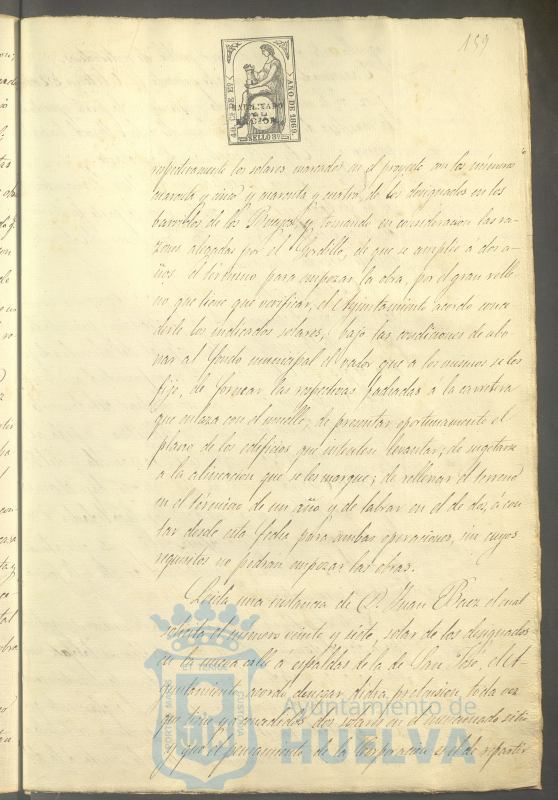 159
40 Cs DE Eº
AÑO DE 1869.
SELLO 9º
respectivamente los solares marcados en el proyecto con los numeros
cuarenta y cinco y cuarenta y cuatro, de los designados en los
barrables de los y, tomando en consideracion las ra-
zones alegadas por el Gordillo, de que se amplie a dos a-
ños el término para empezar la obra, por el gran relle-
no que tiene que verificar, el Ayuntamiento acordo conce-
derle los indicados solares, bajo las condiciones de abo-
nar al fondo municipal el valor que a los mismos se les
fijo, de formar las respectivas fachadas a la carretera
que enlaza con el muelle; de presentar oportunamente el
plano de los edificios que intenten levantar; de sugetarse
a la alineacion que se les marque; de rellenar el terreno
en el término de un año y de labrar en el de dos, á con-
tar desde esta fecha para ambas operaciones, sin cuyos
requisitos no podran empezar las obras.
Leida una instancia de D. Juan Baez el cual
solicita el numero veinte y siete, solar de los designados
en la nueva calle á espaldas de la de San José, el A-
yuntamiento acordo denegar dicha pretension toda vez
que tiene ya concedidos dos solares en el mencionado sitio
y que el pensamiento de la Corporacion es el de repartir
Ayuntamiento de
HUELVA